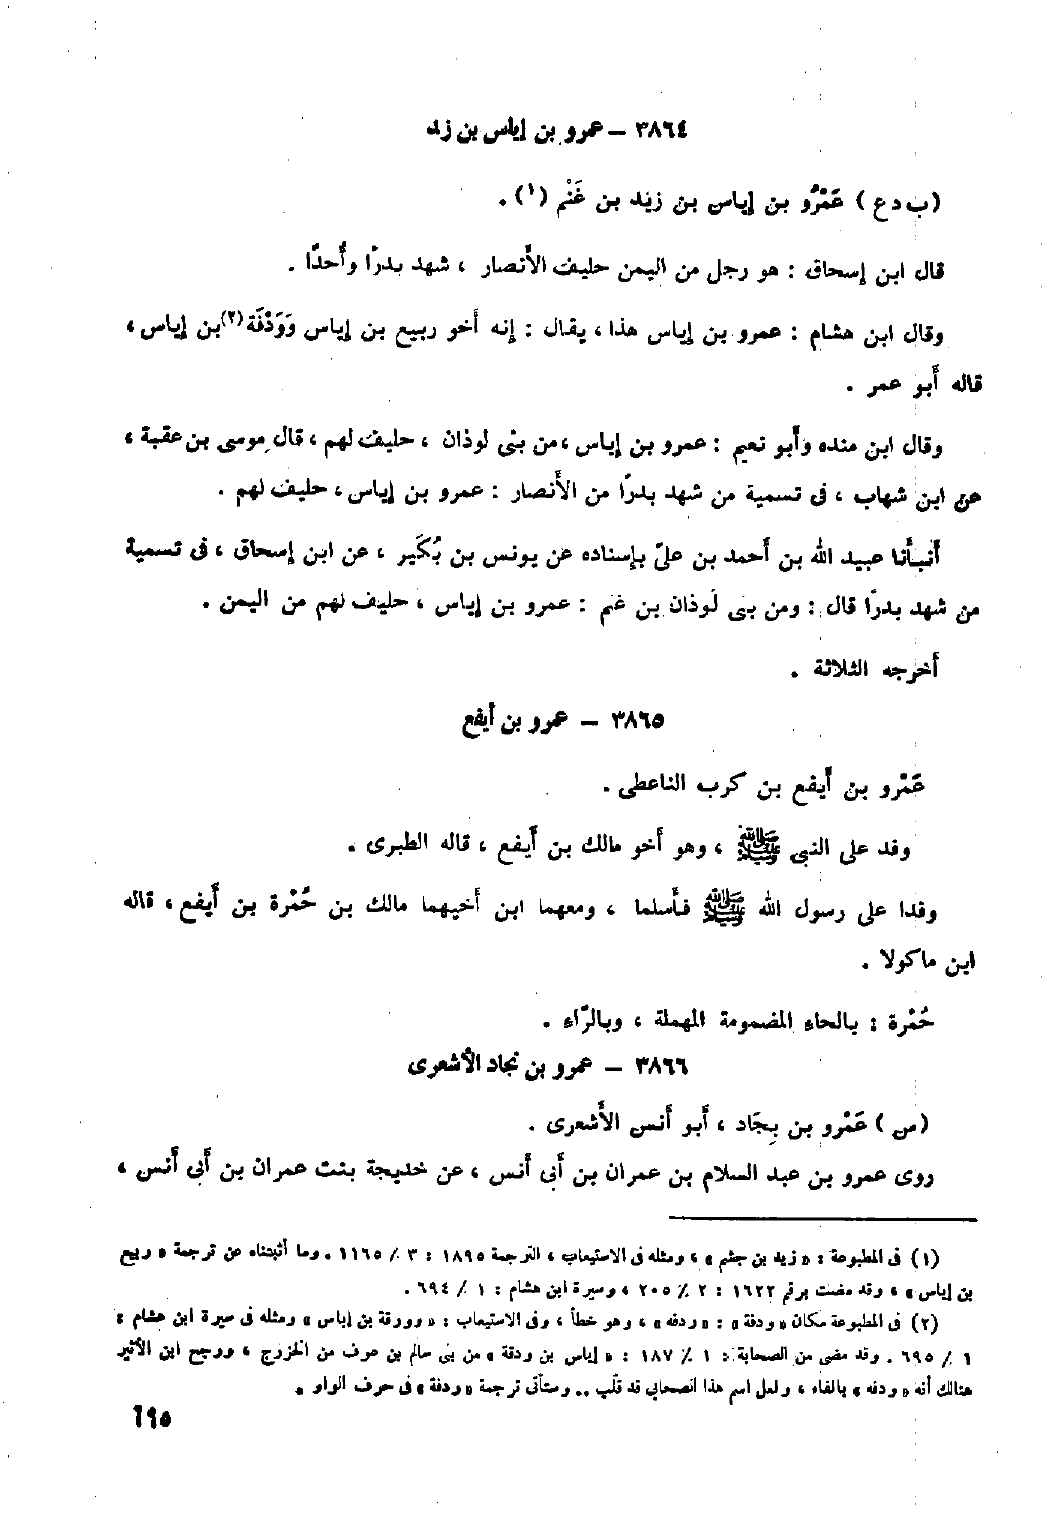 ٣٨٦٤ – عمرو بن إياس بن زيد
(ب د ع) عَمْرُو بن إياس بن زيْد بن غَنْم (١) .
قال ابن إسحاق : هو رجل من اليمن حليف الأنصار ، شهد بدرًا وأُحدًا .
وقال ابن هشام : عمرو بن إياس هذا ، يقال : إنه أخو ربيع بن إياس وَوَدْفَة(٢) بن إياس ،
قاله أبو عمر .
وقال ابن منده وأبو نعيم : عمرو بن إياس ، من بنى لوذان ، حليف لهم ، قال موسى بن عقبة ،
عن ابن شهاب ، فى تسمية من شهد بدرًا من الأنصار : عمرو بن إياس ، حليف لهم .
أنبأنا عبيد الله بن أحمد بن علىّ بإسناده عن يونس بن بُكَير ، عن ابن إسحاق ، فى تسمية
من شهد بدرًا قال : ومن بنى لَوذان بن غنم : عمرو بن إياس ، حليف لهم من اليمن .
أخرجه الثلاثة .
٣٨٦٥ – عمرو بن أيفع
عَمْرو بن أيفع بن كرب الناعطى .
وفد على النبى ﷺ ، وهو أخو مالك بن أيفع ، قاله الطبرى .
وفدا على رسول الله ﷺ فأسلما ، ومعهما ابن أخيهما مالك بن حُمْرة بن أيفع ، قاله
ابن ماكولا .
حُمْرة : بالحاءِ المضمومة المهملة ، وبالرّاءِ .
٣٨٦٦ – عمرو بن بجاد الأشعرى
(س) عَمْرو بن بِجَاد ، أبو أنس الأشعرى .
روى عمرو بن عبد السلام بن عمران بن أبى أنس ، عن خديجة بنت عمران بن أبى أنس ،
(١) فى المطبوعة : « زيد بن جشم » ، ومثله فى الاستيعاب ، الترجمة ١٨٩٥ : ٣ / ١١٦٥ . وما أثبتناه عن ترجمة « ربيع
بن إياس » ، وقد مضت برقم ١٦٢٢ : ٢ / ٢٠٥ ، وسيرة ابن هشام : ١ / ٦٩٤ .
(٢) فى المطبوعة مكان « ودفة » : « ردفه » ، وهو خطأ ، وفى الاستيعاب : « وورقة بن إياس » ومثله فى سيرة ابن هشام :
١ / ٦٩٥ . وقد مضى من الصحابة : ١ / ١٨٧ : « إياس بن ودقة » من بنى سالم بن عوف من الخزرج ، ورجح ابن الأثير
هنالك أنه « ودفه » بالفاء ، ولعل اسم هذا الصحابى قد قلب .. وستأتى ترجمة « ودفة » فى حرف الواو .
٦٩٥